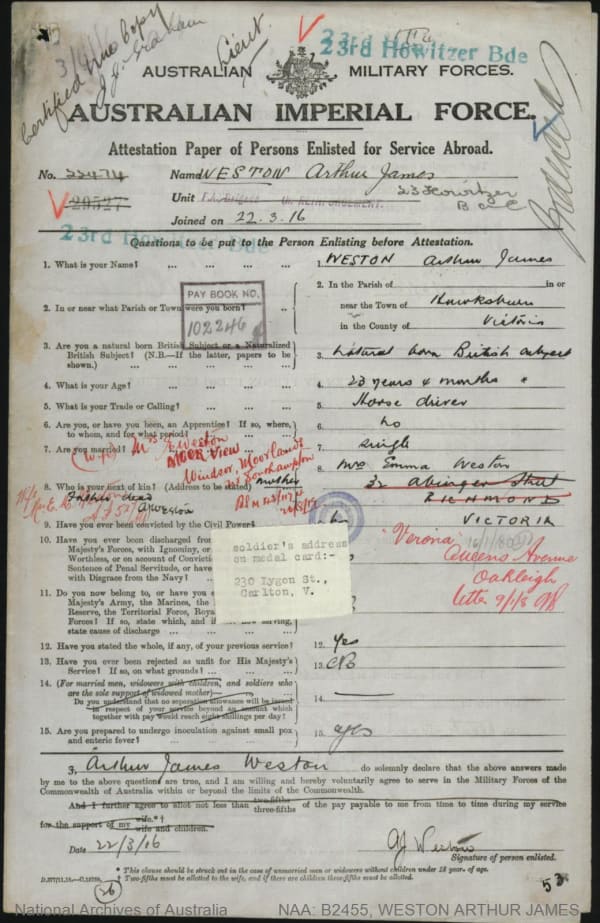 Certified true copy
J. J. Graham
Lieut.
23rd Howitzer Bde
AUSTRALIAN MILITARY FORCES.
AUSTRALIAN IMPERIAL FORCE.
Attestation Paper of Persons Enlisted for Service Abroad.
No. 22474 Name WESTON Arthur James
29527 Unit REINFORCEMENT. 23 Howitzer
Joined on 22.3.16
23rd Howitzer Bde
Questions to be put to the Person Enlisting before Attestation.
1. What is your Name? ... ... ... ... 1. WESTON Arthur James
2. In or near what Parish or Town were you born? 2. In the Parish of in or
near the Town of Hawksburn
in the County of Victoria
PAY BOOK NO.
102246
3. Are you a natural born British Subject or a Naturalized
British Subject? (N.B.—If the latter, papers to be
shown.) ... ... ... 3. Natural born British subject
4. What is your Age? ... ... ... ... 4. 23 years 4 months
5. What is your Trade or Calling? ... ... ... 5. Horse driver
6. Are you, or have you been, an Apprentice? If so, where,
to whom, and for what period? 6. No
7. Are you married? 7. Single
(wife) Mrs E Weston
MOOR VIEW
Windsor, Moorlands
Southampton
8. Who is your next of kin? (Address to be stated) mother 8. Mrs Emma Weston
32 Abinger Street
RICHMOND
VICTORIA
Father dead
AWeston
9. Have you ever been convicted by the Civil Power? 9. No
"Verona"
Queens Avenue
Oakleigh
letter 9/1/8
10. Have you ever been discharged from
Majesty's Forces, with Ignominy, or
Worthless, or on account of Convict
Sentence of Penal Servitude, or have
with Disgrace from the Navy?
soldier's address
on medal card:-
230 Lygon St.,
Carlton, V.
11. Do you now belong to, or have you
Majesty's Army, the Marines, the
Reserve, the Territorial Force, Royal
Forces? If so, state which, and if now serving,
state cause of discharge ... ...
12. Have you stated the whole, if any, of your previous service? 12. Yes
13. Have you ever been rejected as unfit for His Majesty's
Service? If so, on what grounds? ... 13. No
14. (For married men, widowers with children, and soldiers who
are the sole support of widowed mother)—
Do you understand that no separation allowance will be issued
in respect of your service beyond an amount which
together with pay would reach eight shillings per day? 14. —
15. Are you prepared to undergo inoculation against small pox
and enteric fever? ... ... 15. Yes
I, Arthur James Weston do solemnly declare that the above answers made
by me to the above questions are true, and I am willing and hereby voluntarily agree to serve in the Military Forces of the
Commonwealth of Australia within or beyond the limits of the Commonwealth.
And I further agree to allot not less than two-fifths three-fifths of the pay payable to me from time to time during my service
for the support of my wife.*†
wife and children.
Date 22/3/16
AJ Weston
Signature of person enlisted.
* This clause should be struck out in the case of unmarried men or widowers without children under 18 year. of age.
† Two-fifths must be allotted to the wife, and if there are children three-fifths must be allotted.
26
53
National Archives of Australia NAA: B2455, WESTON ARTHUR JAMES